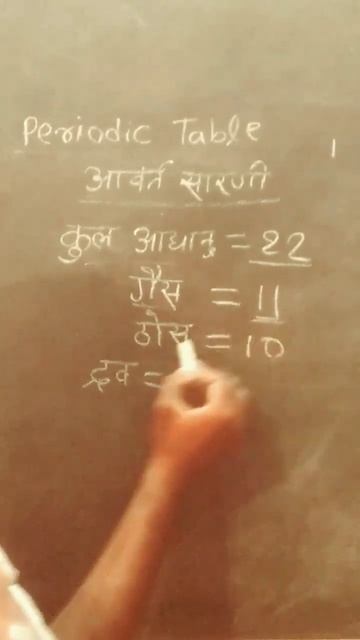 Periodic Table
आवर्त सारणी
कुल आधातु = 22
गैस = 11
ठोस = 10
द्रव =